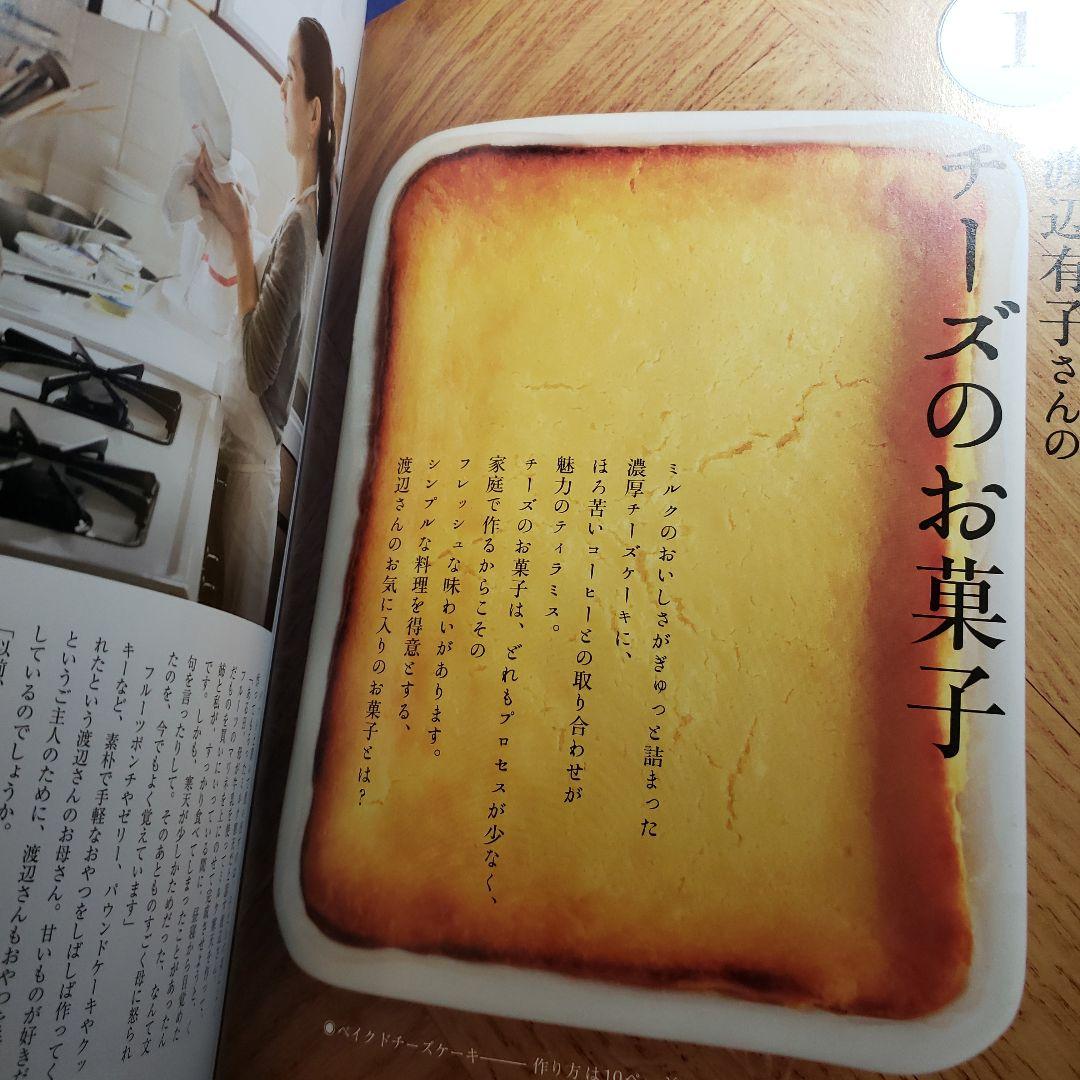 1
渡辺有子さんの
チーズのお菓子
ミルクのおいしさがぎゅっと詰まった
濃厚チーズケーキに、
ほろ苦いコーヒーとの取り合わせが
魅力のティラミス。
チーズのお菓子は、どれもプロセスが少なく、
家庭で作るからこその
フレッシュな味わいがあります。
シンプルな料理を得意とする、
渡辺さんのお気に入りのお菓子とは?
◉ベイクドチーズケーキ—— 作り方は10ページ
姉と私が、すっかり食べてしまったことがあったん
です。しかも、寒天が少しかためだった、なんて文
句を言ったりして。そのあとものすごく母に怒られ
たのを、今でもよく覚えています」
フルーツポンチやゼリー、パウンドケーキやクッ
キーなど、素朴で手軽なおやつをしばしば作ってく
れたという渡辺さんのお母さん。甘いものが好きだ
というご主人のために、渡辺さんもおやつを
しているのでしょうか。
「以前、